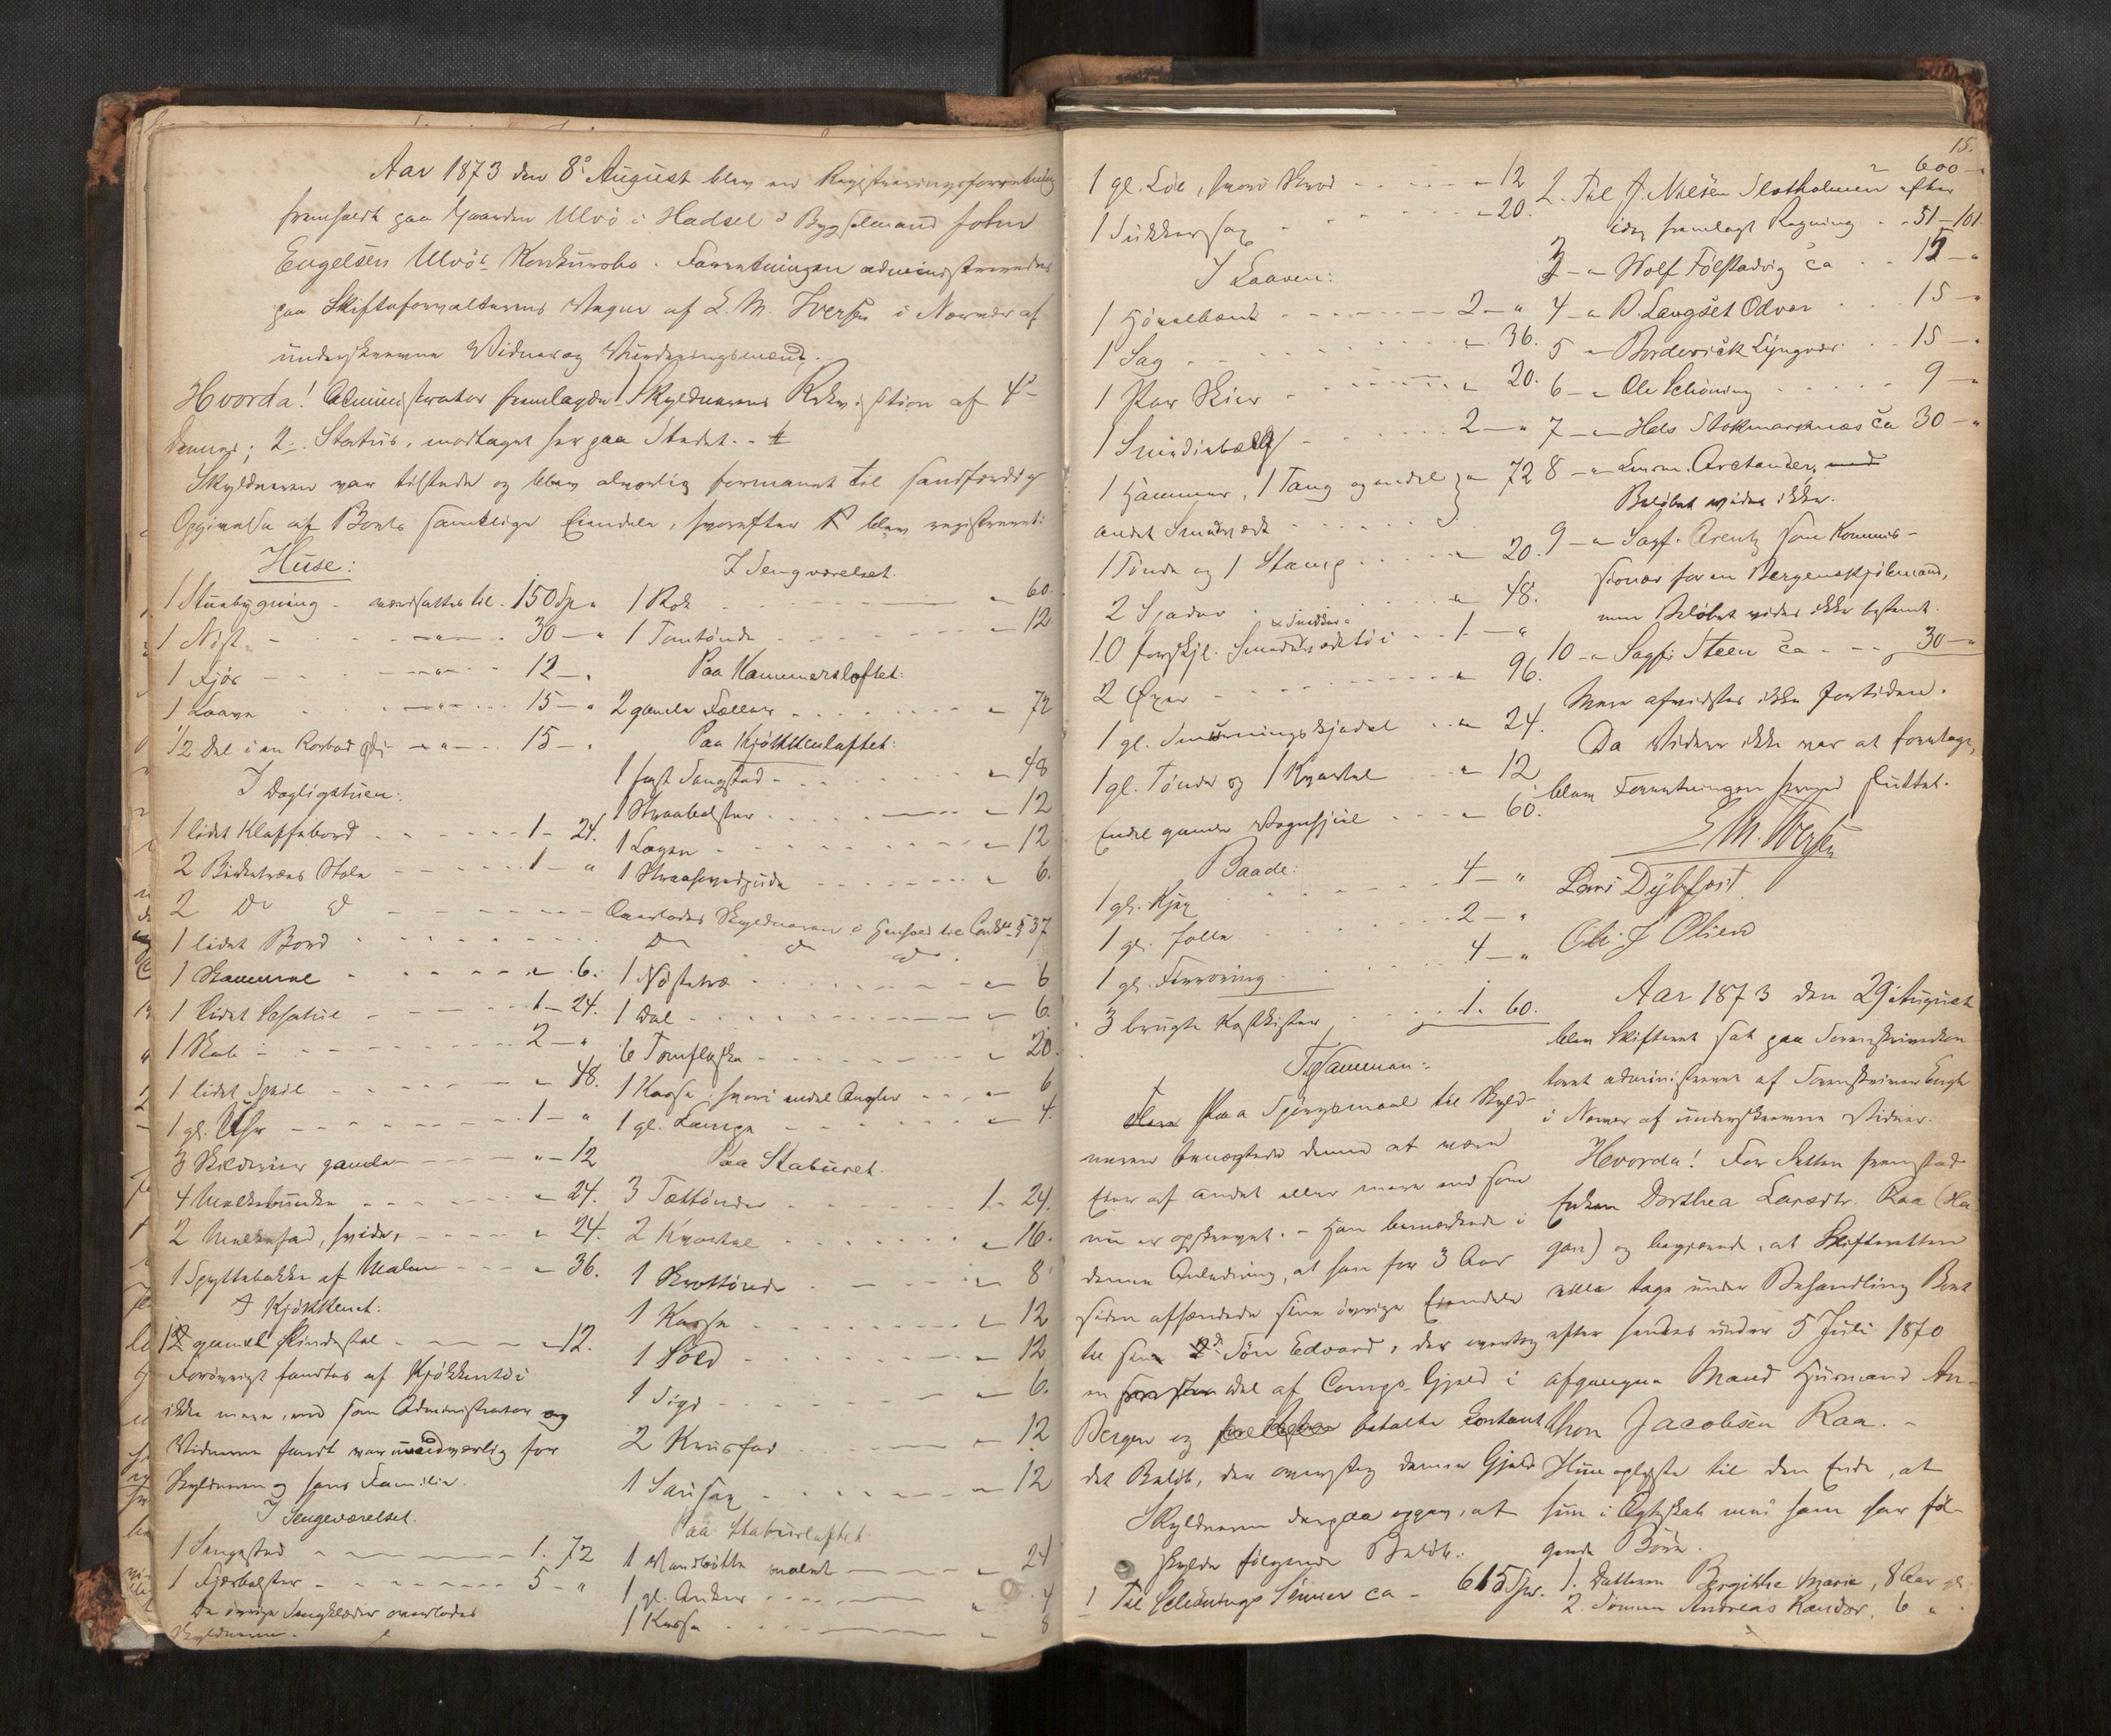 Aar 1873 den 8de August blev en Registreringsforretning
fremholdt paa Gaarden Ulvö i Hadsel i Bygselmand John
Engelsen Ulvö's Konkursbo. Forretningen administreredes
paa Skifteforvalterens Vegne af E. M. Iversen i Nærvær af
underskrevne Vidner og Vurderingsmænd.
Hvorda! Administrator fremlagde 1 Skyldnerens Rekvisition af 4de
dennes; 2 Status, modtaget her paa Stedet.
Skyldneren var tilstede og blev alvorlig formanet til sandfærdig
Opgivelse af Boets samtlige Eiendele, hvorefter blev registreret:
Huse:
1 Stuebygning værdsattes til 150 Sp "
1 Nöst 30 - "
1 Fjös 12 - "
1 Laave 15 - "
1/2 Del i en Rorbod 15 - "
I Dagligstuen:
1 lidet Klaffebord 1 - 24.
2 Birketræes Stole 1 - "
2 Do do
1 lidet Bord
1 Skammel " 6.
1 lidet 1 - 24.
1 Skab 2 - "
1 lidet Speil " 48.
1 gl. Uhr 1 - "
3 Skilderier gamle " - 12
4 Melkebunker " 24.
2 Melkefad, hvide, " 24.
1 Spyttebakke af Malm " 36.
I Kjökkenet:
1 gammel Skindstol " 12.
Forövrigt fandtes af Kjökkentöi
ikke mere, end som Administrator og
Vidnerne fandt var nödværlig for
Skyldneren og hans Familie.
I Sengeværelset.
1 Sengested 1. 72
1 Fjærbolster 5 - "
De övrige Sengklæder overlodes
Skyldneren.
I Sengværelset.
1 Rok " 60.
1 Tomtönde " 12.
Paa Kammersloftet:
2 gamle Fæller " 72
Paa Kjökkenloftet:
1 fast Sengsted " 48
1 Straabolster " 12
1 Lagen " 12
1 Straahovedpude " 6.
Overlodes Skyldneren i Henhold til § 37
Do do do
1 Nöstetræ " 6
1 Dal " 6.
6 Tomflasker " 20.
1 Kasse hvori endel Angler " 6
1 gl. Lampe " 4.
Paa Staburet.
3 Tættönder 1 - 24.
2 Kvartel " 16.
1 Brottönde " 8
1 Kasse " 12
1 Sold " 12
1 Sigt " 6.
2 Krusfad " 12
1 Sausax " 12
Paa Staburloftet.
1 Vandbötte malet " 24
1 gl. Anker " 4
1 Kasse " 8
15.
1 gl. Löe, hvori Skrot " 12
1 Sukkersax " 20.
I Laaven:
1 Hövelbænk 2 - "
1 Sag " 36.
1 Par Skier " 20.
1 Smidiebælg 2 - "
1 Hammer, 1 Tang og endel " 72
andet Smedværk
1 Tönde og 1 Stamp " 20.
2 Spader " 48.
& Snedker-
10 forskjl. Smedværktöi 1 - "
2 Öxer " 96.
1 gl. Smörningskjedel " 24.
1 gl. Tönde og 1 Kvartel " 12
Endel gamle Vognhjul " 60.
Baade:
1 gl. Kjex 4 - "
1 gl. Jolle 2 - "
1 gl. Firroring 4 - "
3 brugte Kostkister 1. 60.
Tilsammen:
Paa Spörgsmaal til Skyld-
neren benægtede denne at være
Eier af andet eller mere end som
nu er opskrevet. - Han bemærkede i
denne Anledning, at han for 3 Aar
siden afhændede sine övrige Eiendele
til sin Sön Edvard, der overtog
en Del af Comps. Gjæld i
Bergen og betalte kontant
det Belöb, der oversteg denne Gjæld
Skyldneren derpaa opgav, at han
skylder fölgende Belöb:
1 Til Sönner ca - 615 Spr.
600 -
2. Til J. Nilsen Slotholmen efter
idag fremlagt Regning 51 - 101.
3 - " Wolf Fölstadvig ca 15 - "
4 - " P. Langset Odvær 15 - "
5 - " Borderick Lyngvær 15 - "
6 - " Ole Schöning 9 - "
7 - " Hals Stokmarknæs ca 30 - "
8 - " Arctander,
Belöbet vides ikke.
9 - " Sagf. Arentz som Kommis-
sionær for en Bergenskjöbmand,
men Belöbet vides ikke bestemt.
10 - " Sagf. Steen ca 30 - "
Mere afvidstes ikke fortiden.
Da Videre ikke var at foretage,
blev Forretningen hermed sluttet.
E M. Iversen
Lars Dybfest
Ole J Olsen
Aar 1873 den 29 August
blev Skifteret sat paa Sorenskriverkon-
toret administreret af Sorenskriver Engh
i Nærvær af underskrevne Vidner.
Hvorda! For Retten fremstod
Enken Dorthea Larsdtr. Raa (Ha-
gen) og begjærede, at Skifteretten
ville tage under Behandling Boet
efter hendes under 5 Juli 1870
afgangne Mand Husmand An-
thon Jacobsen Raa. -
Hun oplyste til den Ende, at
hun i Ægteskab med ham har föl-
gende Börn.
1. Datteren Birgithe Marie, 8 Aar gl.
2. Sönnen Andreas Kandor, 6 "